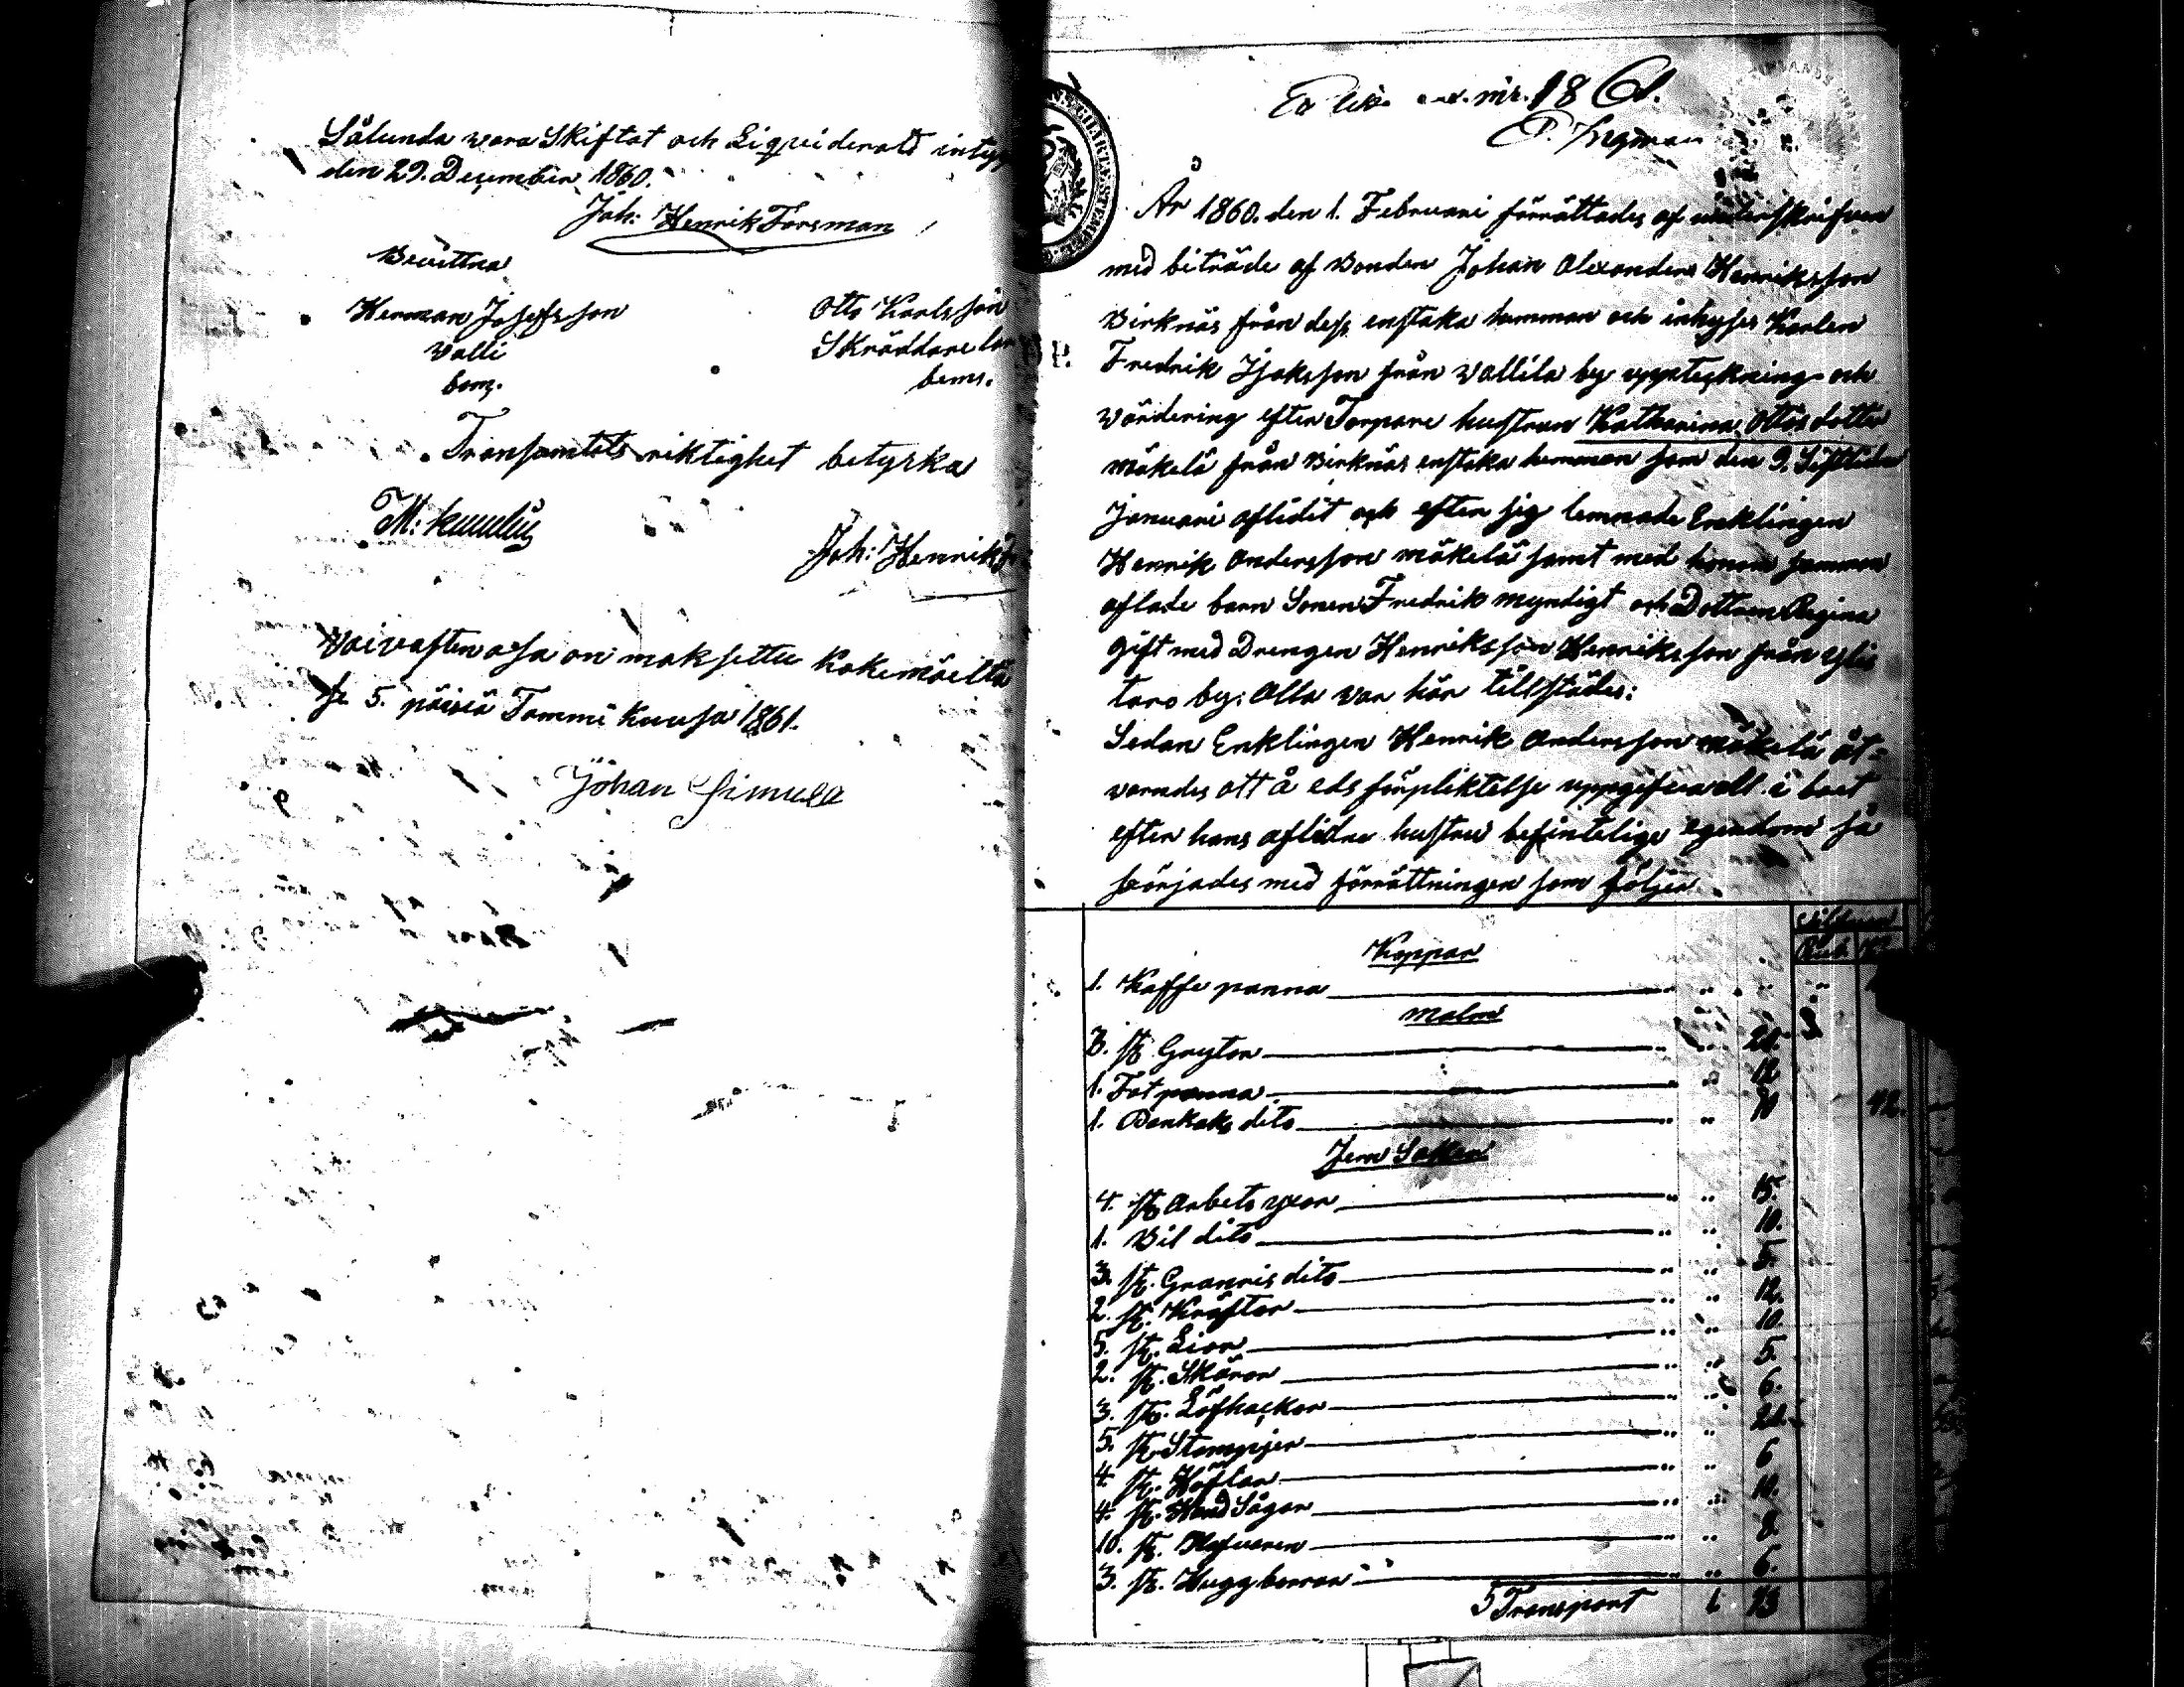 Sålunda vara Skiftat och Liqviderat intyg
den 29. December 1860.
Joh: Henrik Forsman
Bevittna
Herman Josefsson
Valli
bom.
Otto Karlsson
Skräddare
bem.
Transumtets riktighet betyrka
Joh: Henriks
Vaivasten osa on maksettu Kokemäellä
se 5. päiviä Tammi Kuusa 1861.
Johan Simula
186
P. Ingman
År 1860. den 1. Februari förrättades af underskrifven
med biträde af Bonden Johan Alexander Henriksson
Birknäs från dess enstaka hemman och inhyses Karlen
Fredrik Isaksson från Vallila by uppteckning och
värdering efter Torpare hustrun Katharina Ottos dotter
Mäkelä från Birknäs enstaka hemman som den 9. Sistledne
Januari aflidit och efter sig lemnade Enklingen
Henrik Andersson Mäkelä samt med honom samman
aflade barn Sonen Fredrik myndigt och Dottren Regina
Gift med Drengen Henriksson Henriksson från Ylis
taro by: Alla var här tillstädes:
Sedan Enklingen Henrik Andersson Mäkelä åt-
varnades att å eds förpliktelse uppgifva all i boet
efter hans aflidne hustru befintelige egendom så
börjades med förrättningen som följer.
Silfver
Rub
Koppar
1. Kaffe panna
Malm
3. st. Grytor 20.
1. Fot panna 12
1. Pankaks dito 10 42.
Jern Saker
4. st. Arbets yxor 15.
1. Bil dito 10.
3. st. Grannis dito 5.
2. st. Kräftor 12.
5. st. Lior 10.
2. st. Skäror 5.
3. st. Löfhackor 6.
5. st. Stampjer
4. st. Häflar 6
4. st. Hand Sågar 10.
10. st. Hyfveren 8.
3. st. Huggborrar 6.
Transport 1 13